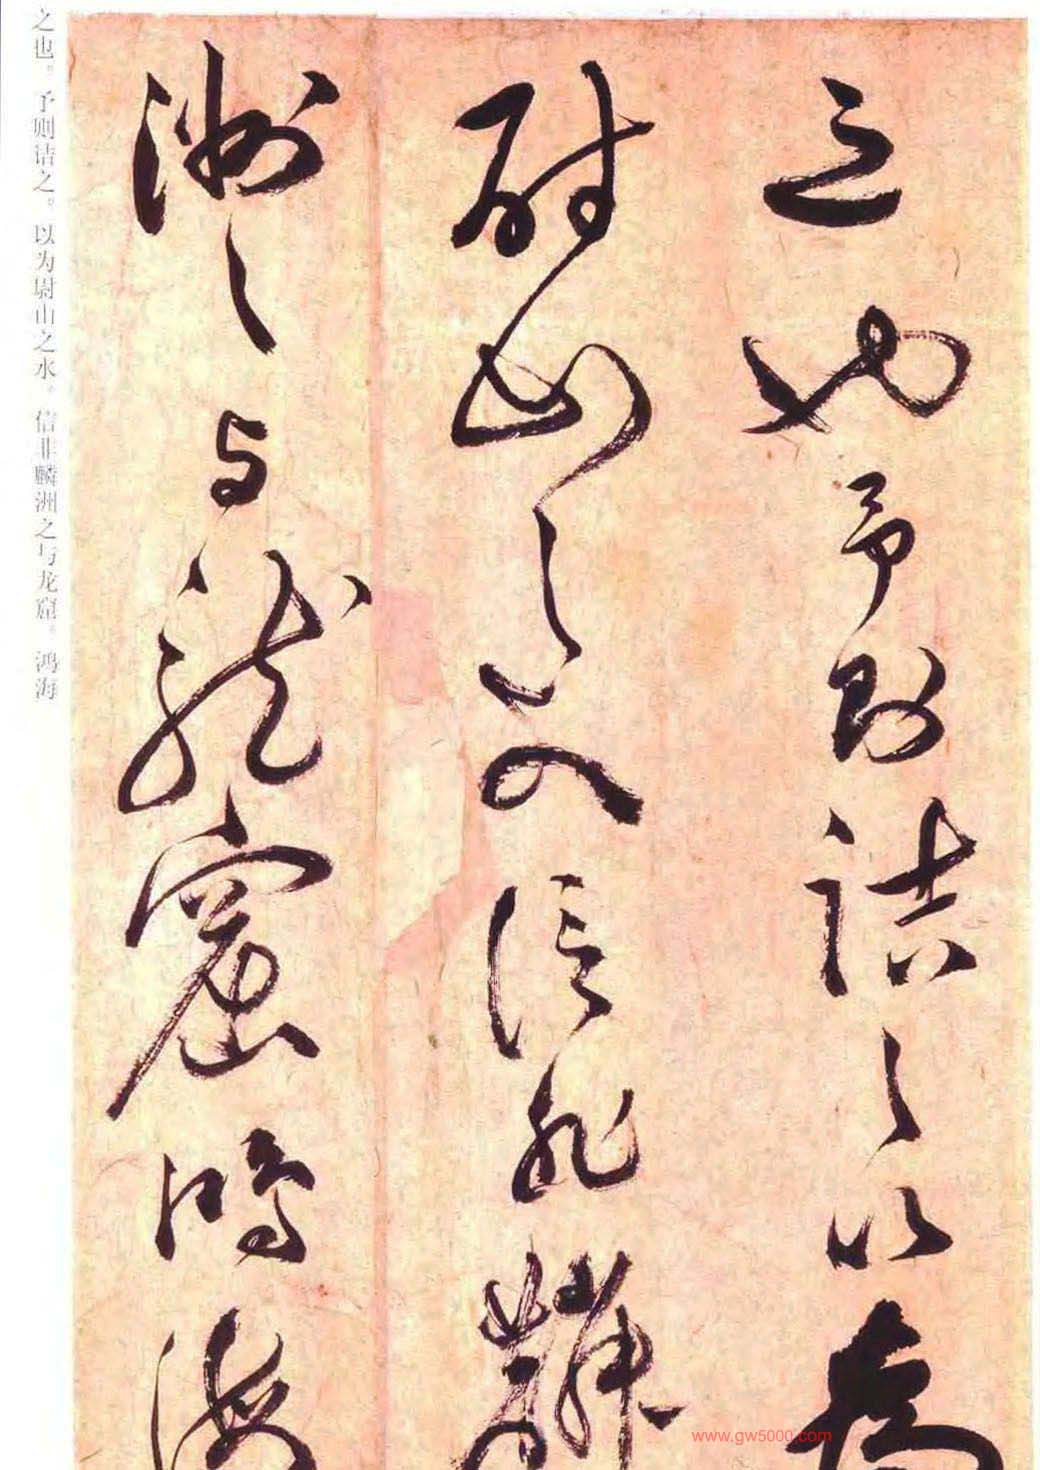 之也予則詰之以為
尉山之水信非麟
洲之与龍窟鴻海
之也。予则诘之。以为尉山之水。信非麟洲之与龙窟。鸿海
www.gw5000.com